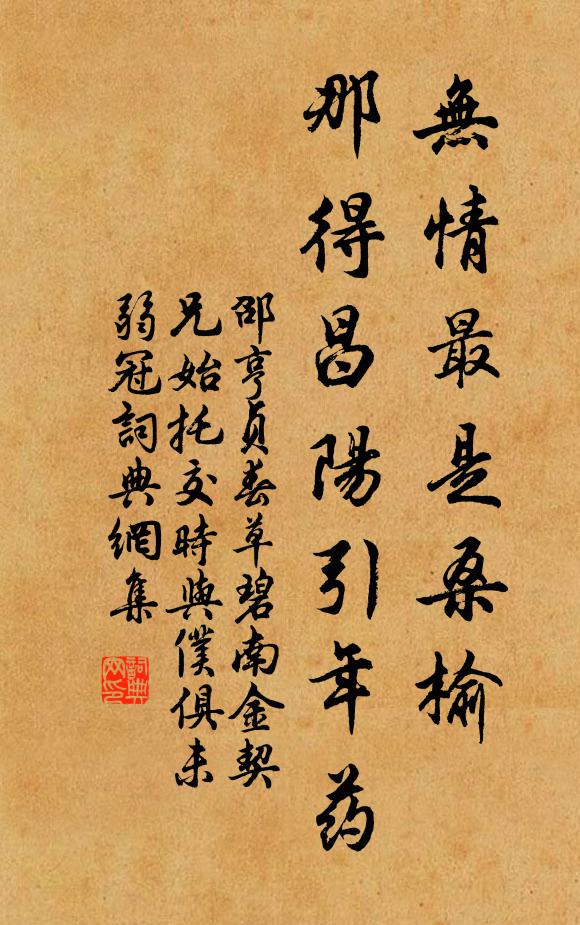 無情最是桑榆
那得昌陽引年药
邵亨貞春草碧南金契
兄始托交時與僕俱未
弱冠詞典網集
詞典
网印